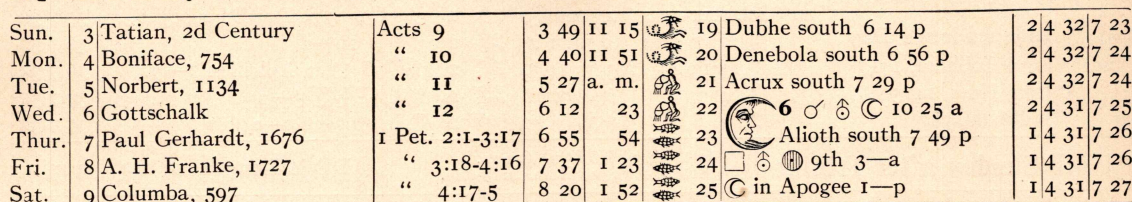 Sun. 3 Tatian, 2d Century Acts 9 3 49 11 15 19 Dubhe south 6 14 p 2 4 32 7 23
Mon. 4 Boniface, 754 “ 10 4 40 11 51 20 Denebola south 6 56 p 2 4 32 7 24
Tue. 5 Norbert, 1134 “ 11 5 27 a. m. 21 Acrux south 7 29 p 2 4 32 7 24
Wed. 6 Gottschalk “ 12 6 12 23 22 6 ☌ ⛢ ☾ 10 25 a 2 4 31 7 25
Thur. 7 Paul Gerhardt, 1676 1 Pet. 2:1-3:17 6 55 54 23 Alioth south 7 49 p 1 4 31 7 26
Fri. 8 A. H. Franke, 1727 “ 3:18-4:16 7 37 1 23 24 □ ⛢ 9th 3—a 1 4 31 7 26
Sat. 9 Columba, 597 “ 4:17-5 8 20 1 52 25 ☾ in Apogee 1—p 1 4 31 7 27